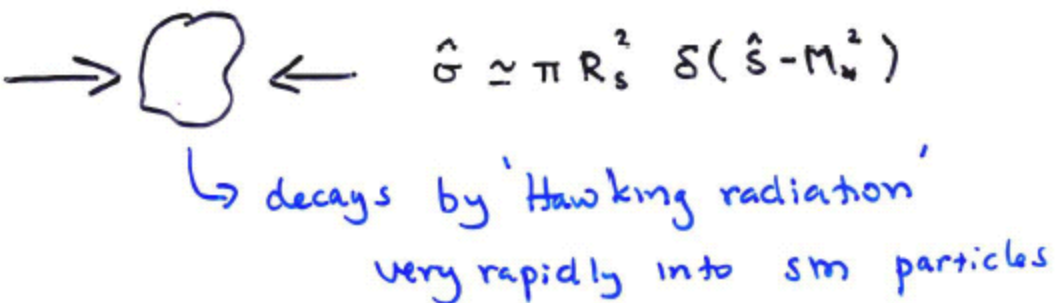 σ̂ ≃ π R_s² δ(ŝ-M_*²)
decays by 'Hawking radiation'
very rapidly into sm particles